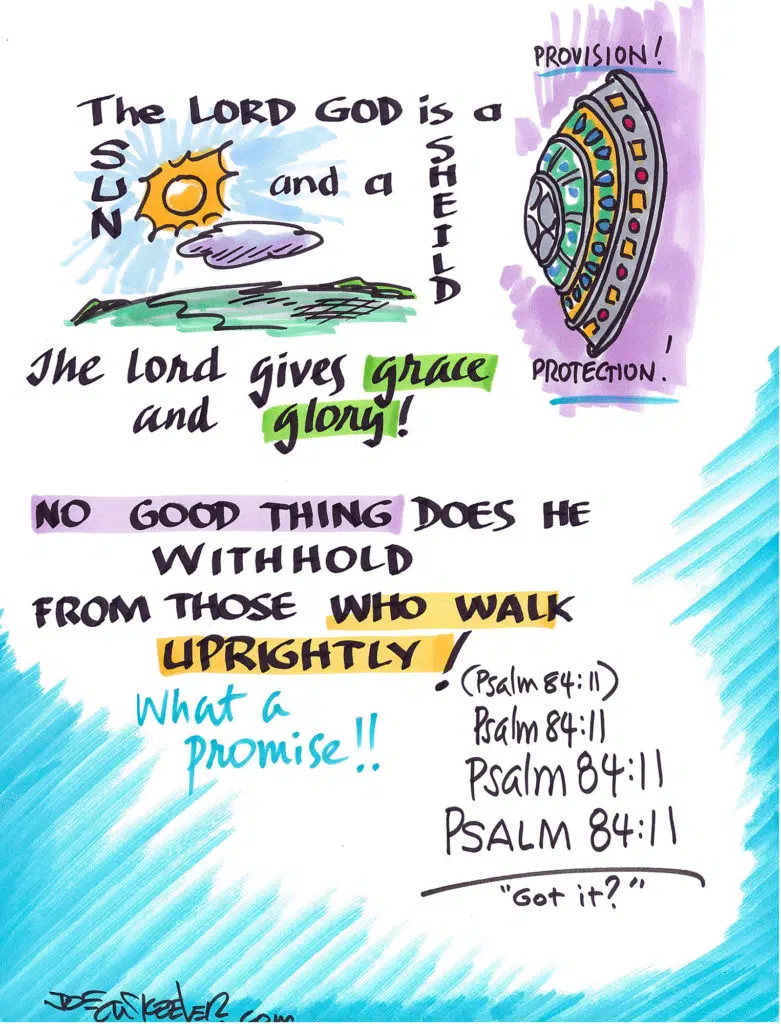 PROVISION!
The LORD GOD is a
SUN
and a
SHEILD
PROTECTION!
The Lord gives grace
and glory!
NO GOOD THING DOES HE
WITHHOLD
FROM THOSE WHO WALK
UPRIGHTLY!
What a
promise!!
(Psalm 84:11)
Psalm 84:11
Psalm 84:11
PSALM 84:11
"Got it?"
JOEMCKEEVER.com